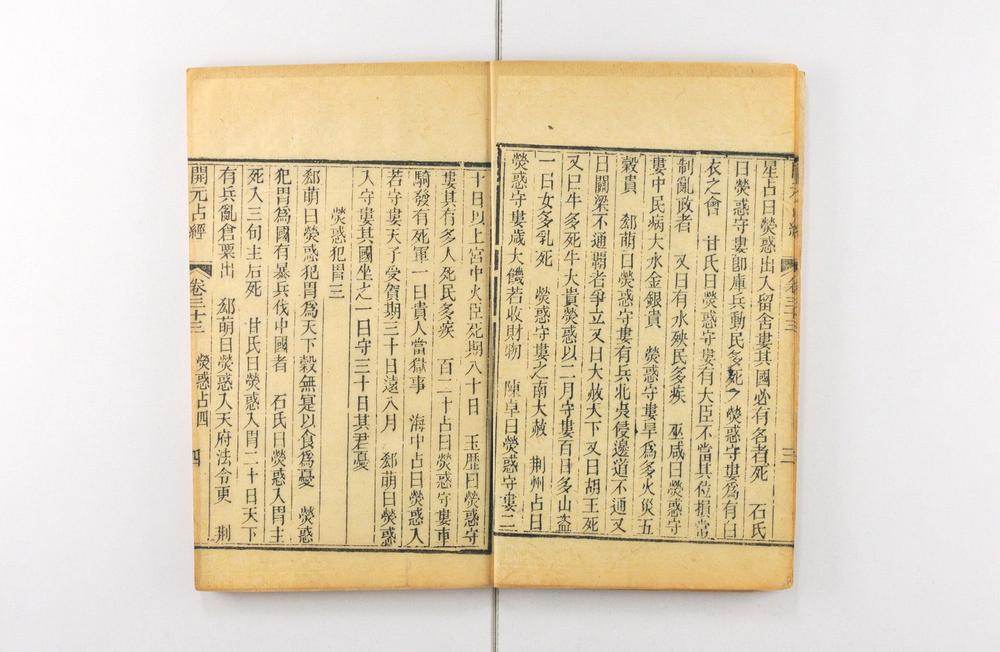 星占曰熒惑出入留舍婁其國必有名者死　石氏
曰熒惑守婁卽庫兵動民多死　熒惑守婁爲有白
衣之會　甘氏曰熒惑守婁有大臣不當其位損常
制亂政者　又曰有水殃民多疾　巫咸曰熒惑守
婁中民病大水金銀貴　熒惑守婁旱爲多火災五
穀貴　郄萌曰熒惑守婁有兵北夷侵邊道不通又
曰關梁不通覇者爭立又曰大赦天下又曰胡王死
又曰牛多死牛大貴熒惑以二月守婁百日多山盜
一曰女多乳死　熒惑守婁之南大赦　荆州占曰
熒惑守婁歲大饑若收財物　陳卓曰熒惑守婁二
卷三十三
三
十日以上宮中火臣死期八十日　玉歷曰熒惑守
婁其有多人死民多疾　百二十占曰熒惑守婁車
騎發有死軍一曰貴人當獄事　海中占曰熒惑入
若守婁天子受賀期三十日遠八月　郄萌曰熒惑
入守婁其國坐之一曰守三十日其君憂
熒惑犯胃三
郄萌曰熒惑犯胃爲天下穀無寔以食爲憂　熒惑
犯胃爲國有暴兵伐中國者　石氏曰熒惑入胃主
死入三旬主后死　甘氏曰熒惑入胃二十日天下
有兵亂倉粟出　郄萌曰熒惑入天府法令更　荆
開元占經　卷三十三　熒惑占四　四